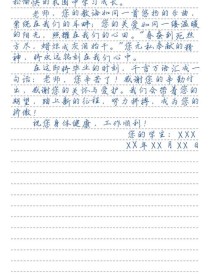 和愉快的氛围中学习成长。
老师,您的教诲如同一首悠扬的乐曲,
萦绕在我们的耳畔;您的关爱如同一缕温暖
的阳光,照耀在我们的心田。“春蚕到死丝
方尽,蜡炬成灰泪始干。”您无私奉献的精
神,将永远铭刻在我们心中。
在这即将毕业的时刻,千言万语汇成一
句话:老师,您辛苦了!感谢您的辛勤付
出,感谢您的关怀与爱护。我们会带着您的
期望,踏上新的征程,努力拼搏,成为您的
骄傲!
祝您身体健康,工作顺利!
您的学生:XXX
XX年XX月XX日